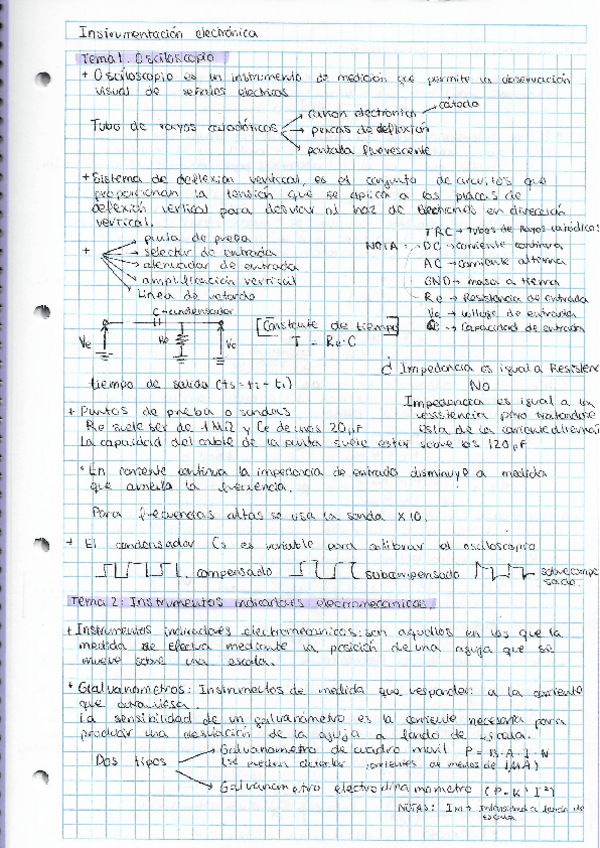 Instrumentación electrónica
Tema 1. Osciloscopio
+ Osciloscopio es un instrumento de medición que permite la observación
visual de señales electricas
Tubo de rayos catódicos
cañon electronico → cátodo
placas de deflexión
pantalla fluorescente
+ Sistema de deflexion vertical, es el conjunto de circuitos que
proporcionan la tensión que se aplica a las placas de
deflexión vertical para desviar al haz de electrones en dirección
vertical.
+
punta de prueba
selector de entrada
atenuador de entrada
amplificación vertical
Linea de retardo
NOTA:
TRC → tubos de rayos catódicos
DC → corriente continua
AC → corriente alterna
GND → masa a tierra
Re → Resistencia de entrada
Ve → voltaje de entrada
Ce → Capacidad de entrada
C → condensador
Ve Re Vc
[Constante de tiempo]
T = Re·C
tiempo de salida (ts = t2 - t1)
¿ Impedancia es igual a Resistenc
NO
Impedancia es igual a la
resistencia pero tratandose
esta de la corriente alterna
+ Puntas de prueba o sondas
Re suele ser de 1MΩ y Ce de unos 20pF
La capacidad del cable de la punta suele estar sobre los 120pF
* En corriente continua la impedancia de entrada disminuye a medida
que aumenta la frecuencia.
Para frecuencias altas se usa la sonda x10.
+ El condensador Cs es variable para calibrar el osciloscopio
compensado subcompensado sobrecompe
sado.
Tema 2: Instrumentos indicadores electromecanicos.
+ Instrumentos indicadores electromecanicos: son aquellos en los que la
medida se efectua mediante la posición de una aguja que se
mueve sobre una escala.
* Galvanometros: Instrumentos de medida que responden a la corriente
que atraviesa.
La sensibilidad de un galvanómetro es la corriente necesaria para
producir una desviación de la aguja a fondo de escala.
Dos tipos
Galvanometro de cuadro movil P = B·A·I·N
(se pueden detectar corrientes de menos de 1μA)
Galvanometro electrodinamometro (P=K·I²)
NOTAS: Im → a fondo de
escala